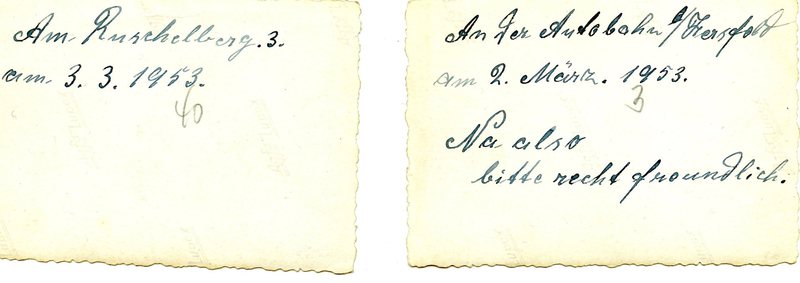 Am Ruschelberg. 3.
am 3. 3. 1953.
40
An der Autobahn b/Hersfeld
am 2. März. 1953.
3
Na also
bitte recht froundlich.